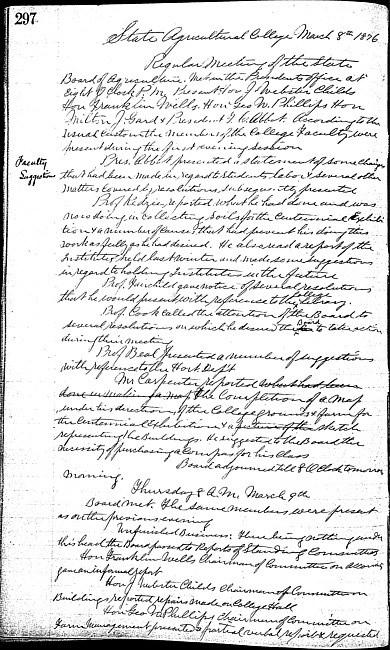 297
State Agricultural College March 8th 1876
Regular Meeting of the State
Board of Agriculture. Met in the Presidents office at
Eight O'Clock P.M. Present Hon J. Webster Childs
Hon Franklin Wells, Hon Geo W. Phillips Hon
Milton J. Gard & President T. C. Abbot. According to the
usual custom the members of the College Faculty were
present during the first evening session
Faculty
Suggestions
Pres. Abbot presented a statement of some changes
that had been made in regard to students labor & several other
matters covered by resolutions subsequently presented
Prof Kedzie reported what he had done and was
now doing in collecting soils for the Centennial Exhibi
tion & a number of causes that had prevented his doing this
work as fully as he had desired. He also read a report of the
Institutes held last winter and made some suggestions
in regard to holding Institutes in the future
Prof. Fairchild gave notice of several resolutions
that he would present with reference to the Library.
Prof. Cook called the attention of the Board to
several resolutions on which he desired the Board to take action
during their meeting
Prof Beal presented a number of suggestions
with reference to the Hort Dept
Mr Carpenter reported what had been
done in making a map the completion of a map
under his direction of the College grounds & farm for
the Centennial Exhibition & a sketch
representing the Buildings. He suggested to the Board the
necessity of purchasing a Compass for his class
Board adjourned till 8 O'Clock tomorrow
morning.
Thursday 8 A.M. March 9th
Board met. The same members were present
as on the previous evening
Unfinished Business: There being nothing under
this head the Board passed to Reports of Standing Committees
Hon Franklin Wells Chairman of Committee on
gave an informal report
Hon J Webster Childs Chairman of Committee on
Buildings reported repairs made on College Hall
Hon Geo W Phillips chairman of Committee on
Farm Management presented a partial verbal report & requested